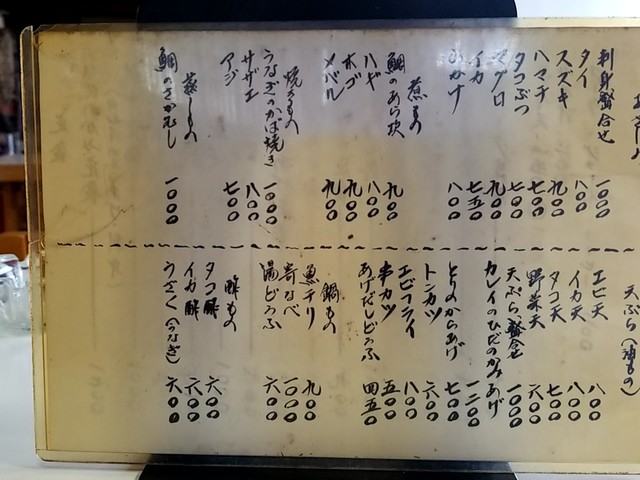 刺身盛合せ 一〇〇〇
タイ 八〇〇
スズキ 九〇〇
ハマチ 七〇〇
タコぶつ 七〇〇
マグロ 九〇〇
イカ 七五〇
八〇〇
煮もの
鯛のあら炊 九〇〇
ハギ 八〇〇
ホゴ 九〇〇
メバル 九〇〇
焼きもの
うなぎのかば焼き 一〇〇〇
サザエ 八〇〇
アジ 七〇〇
蒸しもの
鯛のさかむし 一〇〇〇
天ぷら(油もの)
エビ天 八〇〇
イカ天 八〇〇
タコ天 七〇〇
野菜天 六〇〇
天ぷら盛合せ 一〇〇〇
カレイのひだのかみあげ 一二〇〇
とりのからあげ 七〇〇
トンカツ 六〇〇
エビフライ 八〇〇
串カツ 五〇〇
あげだしどうふ 四五〇
鍋もの
魚チリ 九〇〇
寄なべ 一〇〇〇
湯どうふ 六〇〇
酢もの
タコ酢 六〇〇
イカ酢 六〇〇
うざく(うなぎ) 六〇〇